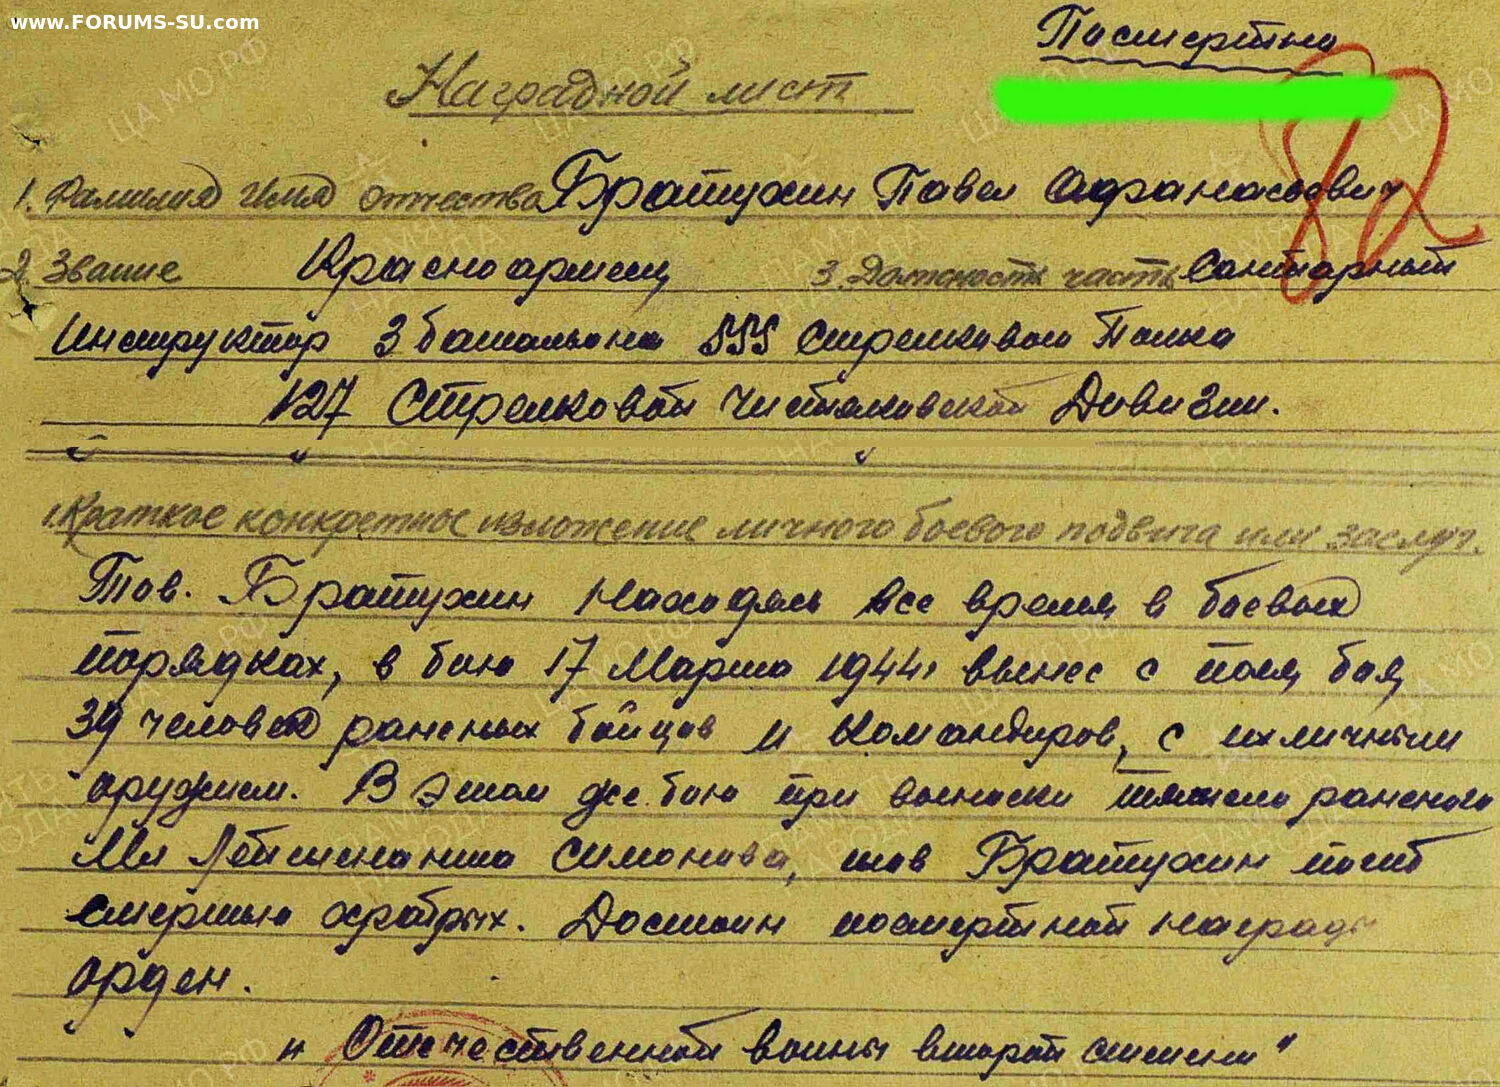 www.FORUMS-SU.com
Посмертно
Наградной лист
82
1. Фамилия Имя отчество Братухин Павел Афанасьевич
2. Звание Красноармеец 3. Должность часть Санитарный
Инструктор 3 батальона 555 Стрелкового Полка
127 Стрелковой Чистяковской Дивизии.
1. Краткое конкретное изложение личного боевого подвига или заслуг.
Тов. Братухин находясь все время в боевых
порядках, в бою 17 Марта 1944г вынес с поля боя
39 человек раненых бойцов и командиров, с их личным
оружием. В этом же бою при выноски тяжело раненого
Мл Лейтенанта Симонова, тов Братухин погиб
смертью храбрых. Достоин посмертной награды
орден.
"Отечественной войны второй степени"